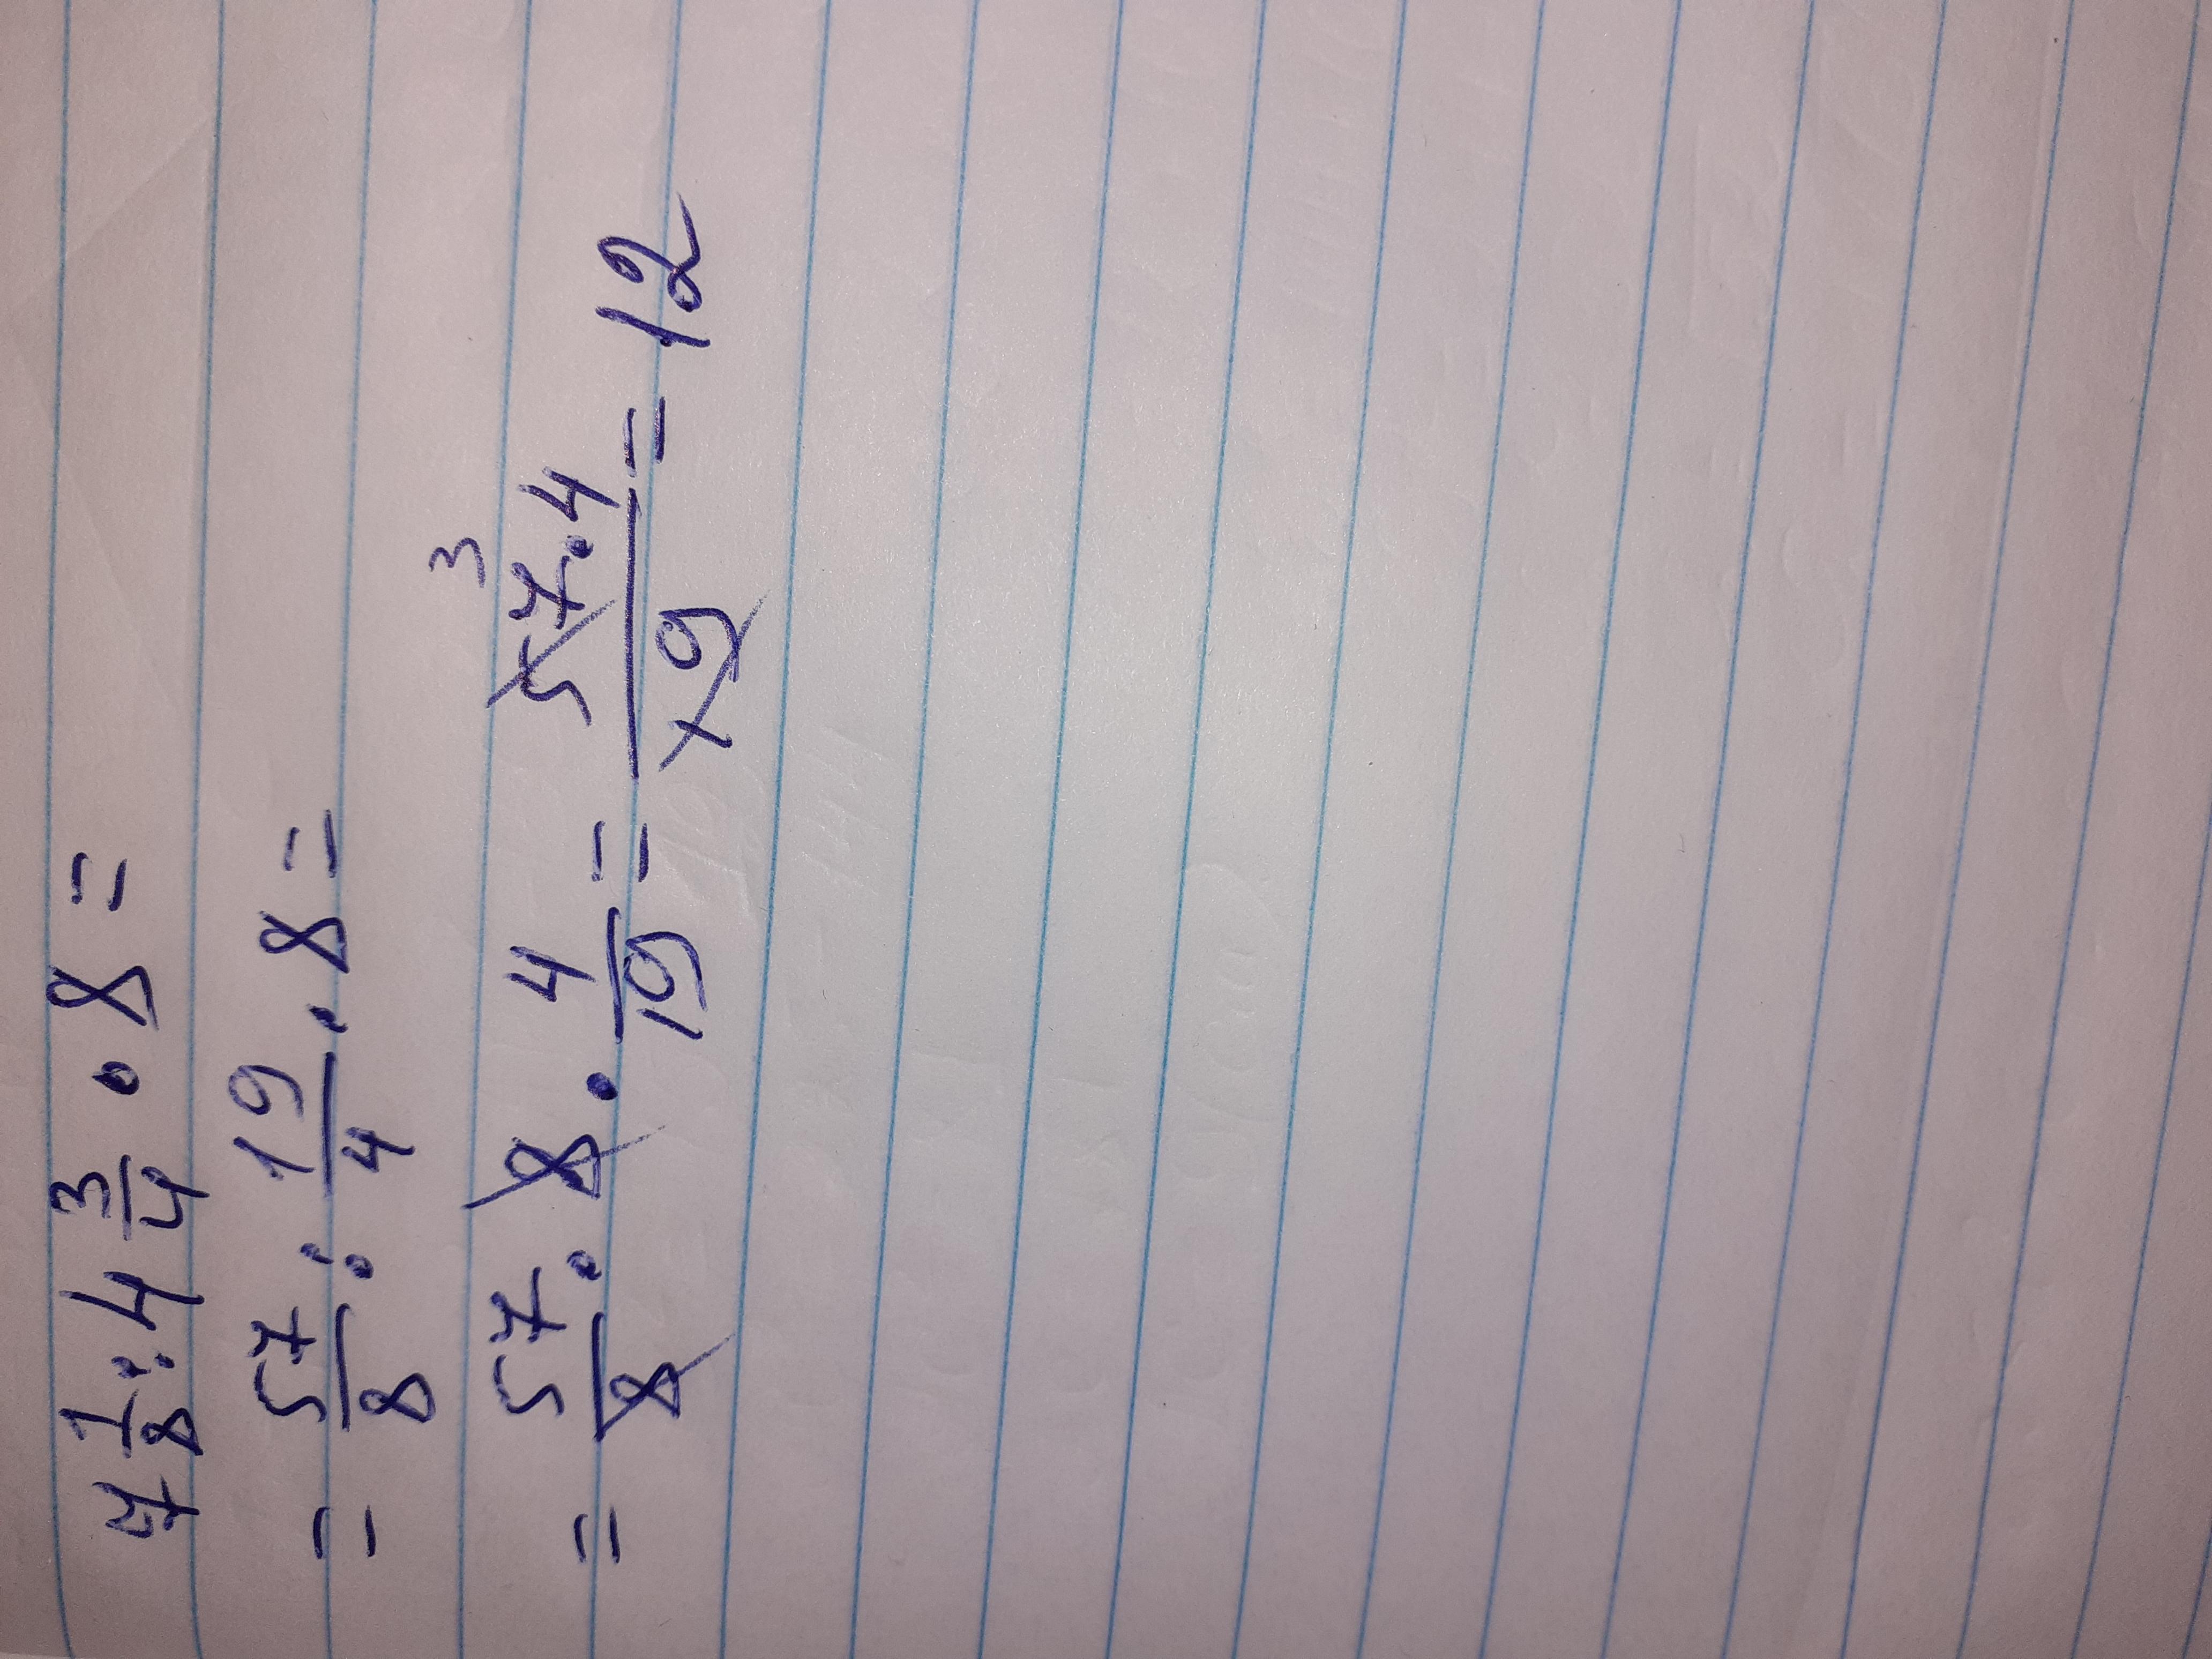 7 1/8 : 4 3/4 · 8 =
= 57/8 : 19/4 · 8 =
= 57/8 · 8 · 4/19 = 57³ · 4 / 19 = 12